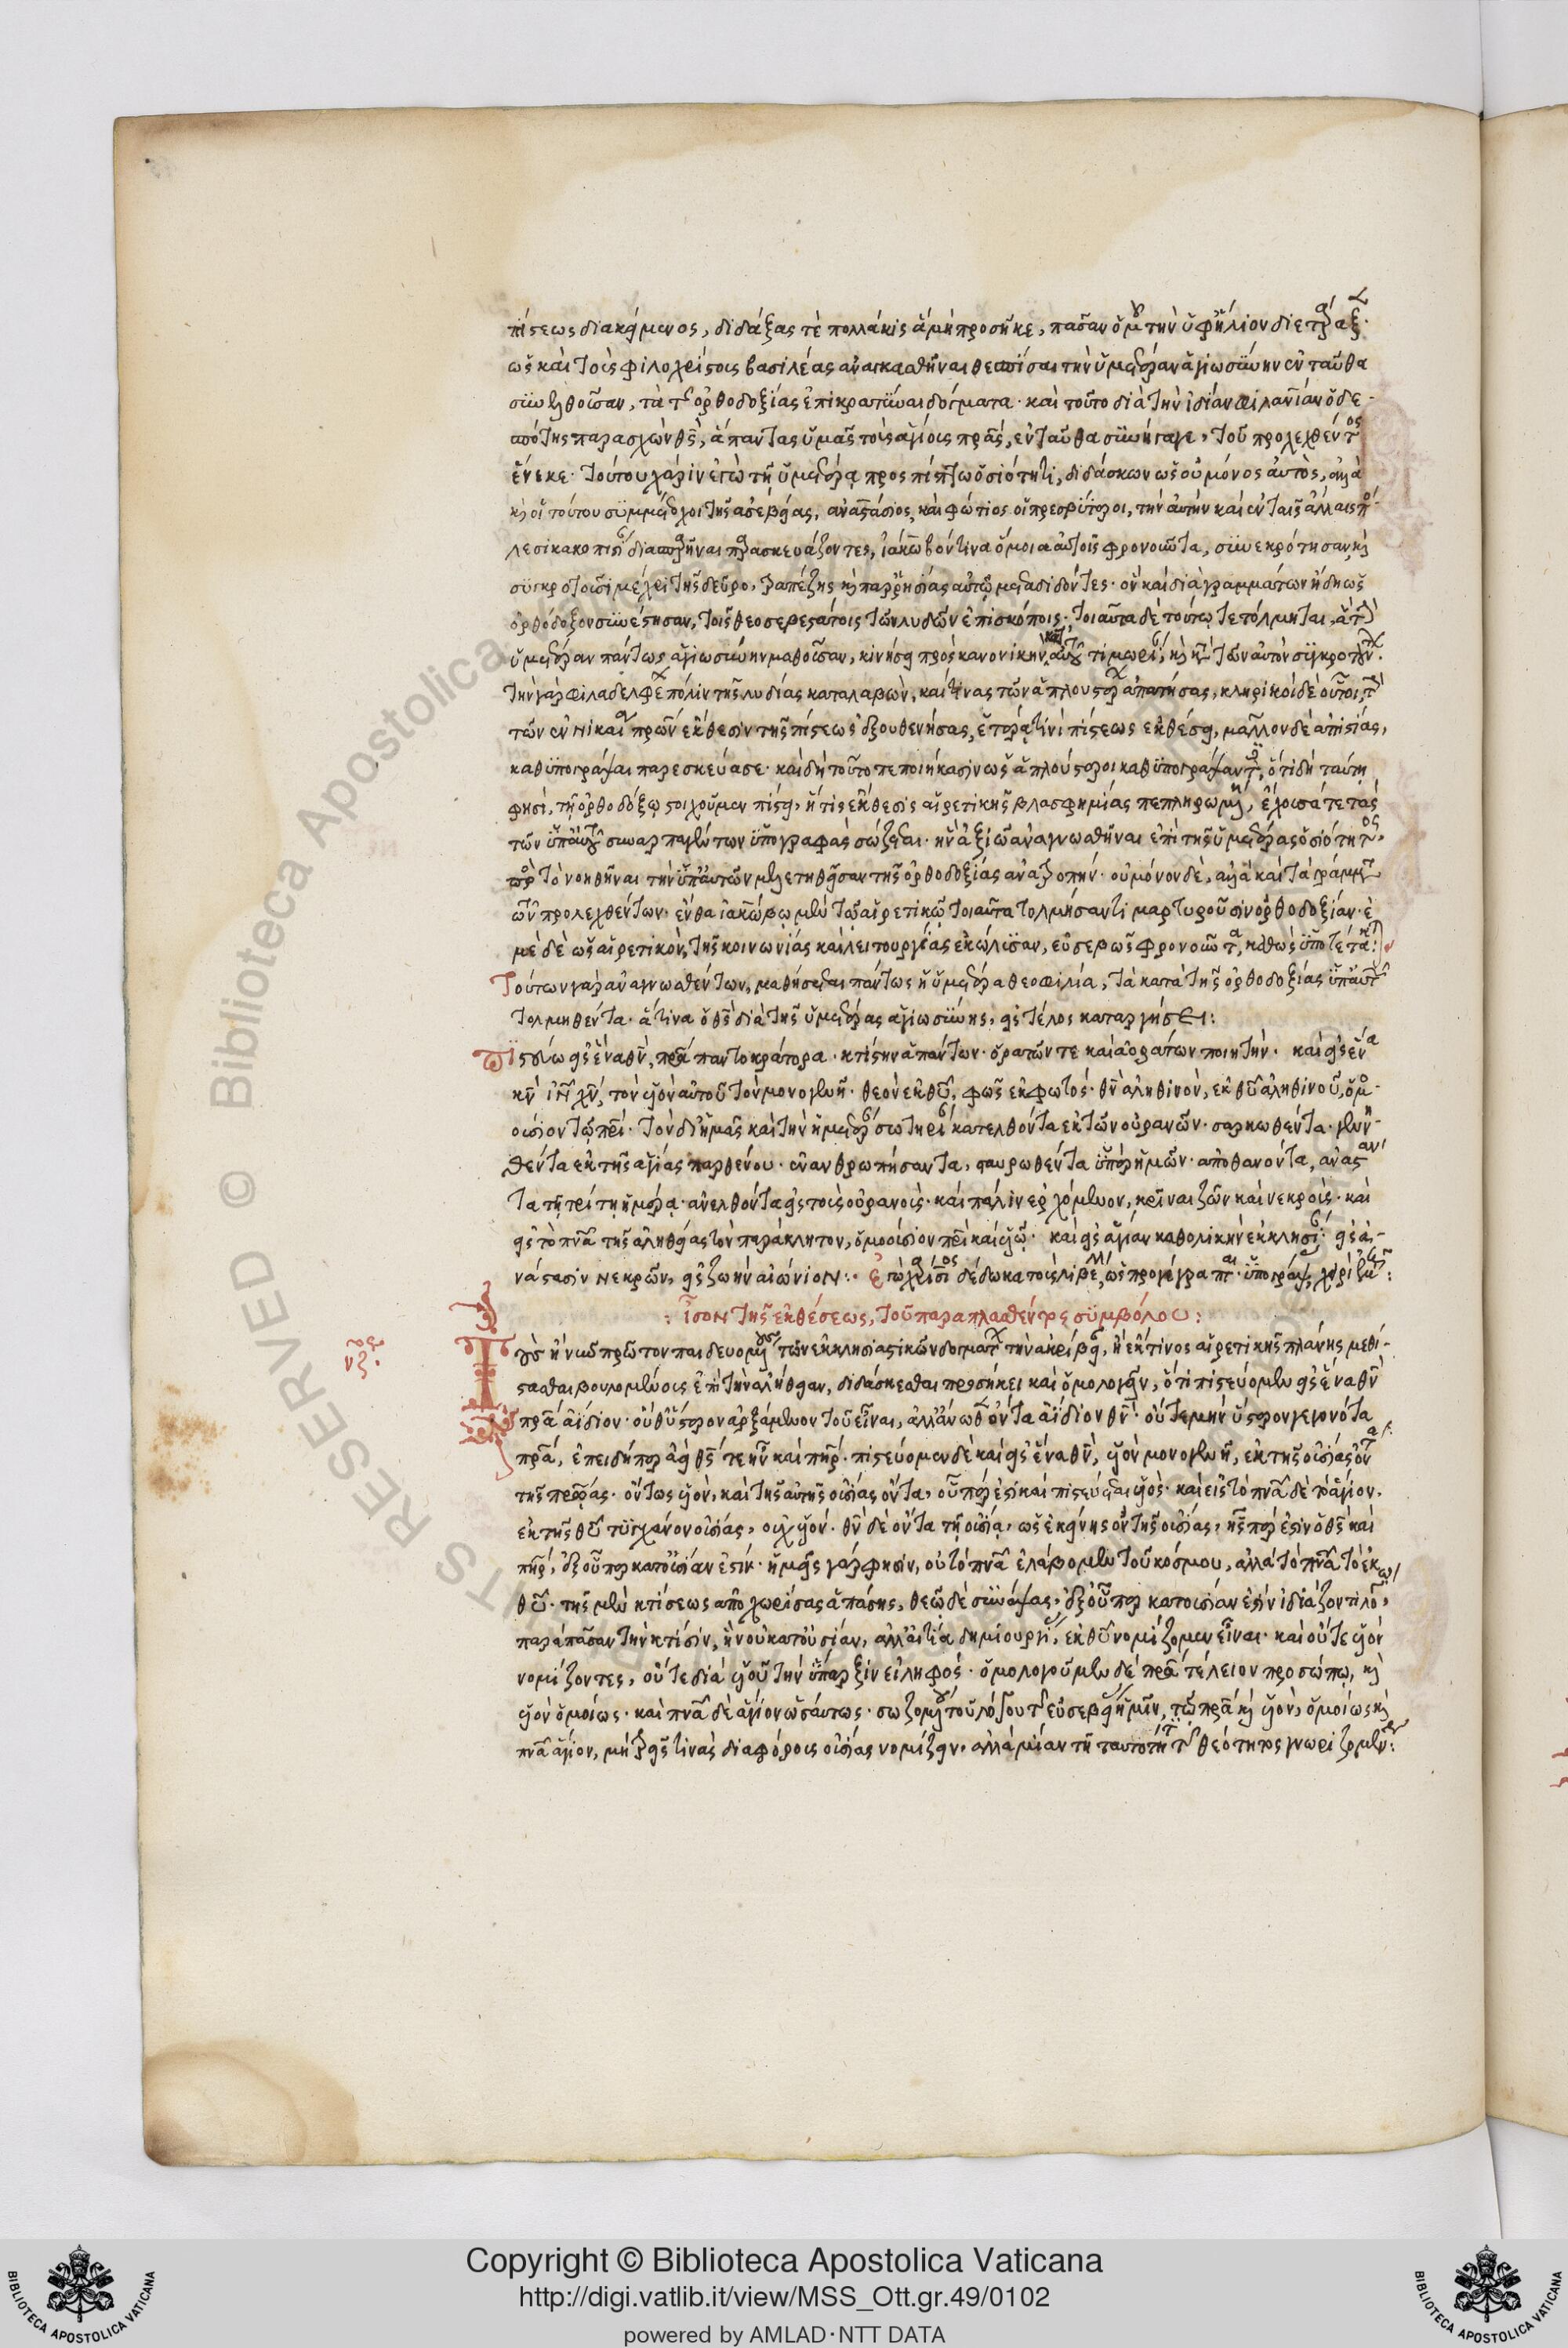 πίστεως διακείμενος, διδάξας τὲ πολλάκις ἃ μὴ προσῆκε, πᾶσαν ὁμοῦ τὴν ὑφήλιον διετάραξ
ὡς καὶ τοῖς φιλοχρίστοις βασιλέας ἀναγκασθῆναι θεσπίσαι τὴν ὑμετέραν ἁγιωσύνην ἐνταῦθα
συνελθοῦσαν, τὰ τῆς ὀρθοδοξίας ἐπικρατῦναι δόγματα· καὶ τοῦτο διὰ τὴν ἰδίαν φιλανίαν ὁ δε
σπότης παρασχὼν θς, ἅπαντας ὑμᾶς τοὺς ἁγίους πρας, ἐνταῦθα συνήγαγε, τοῦ προλεχθέντος
ἕνεκε· τούτου χάριν ἐγὼ τῇ ὑμετέρᾳ προσπίπτω ὁσιότητι, διδάσκων ὡς οὐ μόνος αὐτὸς, ἀλλὰ
κὶ οἱ τούτου σύμμέτοχοι τῆς ἀσεβείας, ἀναστάσιος, καὶ φώτιος οἱ πρεσβύτεροι, τὴν αὐτὴν καὶ ἐν ταῖς ἄλλαις πό
λεσι κακοπιστίαν διασπαρῆναι παρασκευάζοντες, ἰάκωβόν τινα ὅμοια αὐτοῖς φρονοῦντα, συνεκρότησαν κὶ
συγκροτοῦσι μέχρι τῆς δεῦρο, τραπέζης κὶ παρρησίας αὐτῷ μεταδιδόντες· ὃν καὶ διὰ γραμμάτων ἤδη ὡς
ὀρθόδοξον συνέστησαν, τοῖς θεοσεβεστάτοις τῶν λυδῶν ἐπισκόποις· τοιαῦτα δὲ τούτῳ τετόλμηται, ἅτινα
ὑμετέραν πάντως ἁγιωσύνην μαθοῦσαν, κινήσῃ πρὸς κανονικὴν κατ αὐτοῦ τιμωρίαν, κὶ κατὰ τῶν αὐτὸν συγκροτούντων
τὴν γὰρ φιλαδελφέων πόλιν τῆς λυδίας καταλαβὼν, καί τινας τῶν ἁπλουστέρων ἀπατήσας, κληρικοὶ δὲ οὗτοι, τὴν
τῶν ἐν νικαίᾳ πρων ἔκθεσιν τῆς πίστεως ἐξουθενήσας, ἑτέρᾳ τινὶ πίστεως ἐκθέσει, μᾶλλον δὲ ἀπιστίας,
καθυπογράψαι παρεσκεύασε· καὶ δὴ τοῦτο πεποιήκασιν ὡς ἁπλούστεροι καθυπογράψαντες, ὅτι δὴ ταύτῃ
φησὶ, τῇ ὀρθοδόξῳ στοιχοῦμεν πίστει, ἥτις ἔκθεσις αἱρετικῆς βλασφημίας πεπληρωμένη, ἔχουσά τε τὰς
τῶν ὑπ αὐτοῦ συναρπαγέντων ὑπογραφὰς σώζεται· ἣν ἀξιῶ ἀναγνωσθῆναι ἐπὶ τῆς ὑμετέρας ὁσιότητος,
πρὸς τὸ νοηθῆναι τὴν ὑπ αὐτῶν μελετηθεῖσαν τῆς ὀρθοδοξίας ἀνατροπήν· οὐ μόνον δὲ, ἀλλὰ καὶ τὰ γράμματα
τῶν προλεχθέντων· ἔνθα ἰακώβῳ μὲν τῷ αἱρετικῷ τοιαῦτα τολμήσαντι μαρτυροῦσιν ὀρθοδοξίαν· ἐ
μὲ δὲ ὡς αἱρετικὸν, τῆς κοινωνίας καὶ λειτουργίας ἐκώλυσαν, εὐσεβῶς φρονοῦντα, καθὼς ὑποτέτακται
Τούτων γὰρ ἀναγνωσθέντων, μαθήσεται πάντως ἡ ὑμετέρα θεοφιλία, τὰ κατὰ τῆς ὀρθοδοξίας ὑπ αὐτῶν
τολμηθέντα· ἅτινα ὁ θς διὰ τῆς ὑμετέρας ἁγιωσύνης, εἰς τέλος καταργήσει:
Πιστεύω εἰς ἕνα θν, πρα παντοκράτορα· κτίστην ἁπάντων· ὁρατῶν τε καὶ ἀοράτων ποιητήν· καὶ εἰς ἕνα
κν ιν χν, τὸν υἱὸν αὐτοῦ τὸν μονογενῆ· θεὸν ἐκ θυ, φῶς ἐκ φωτός· θν ἀληθινὸν, ἐκ θυ ἀληθινοῦ, ὁμο
ούσιον τῷ πρι· τὸν δι ἡμᾶς καὶ τὴν ἡμετέραν σωτηρίαν κατελθόντα ἐκ τῶν οὐρανῶν· σαρκωθέντα· γενη
θέντα ἐκ τῆς ἁγίας παρθένου· ἐνανθρωπήσαντα, σταυρωθέντα ὑπὲρ ἡμῶν· ἀποθανόντα, ἀναστάν
τα τῇ τρίτῃ ἡμέρᾳ· ἀνελθόντα εἰς τοὺς οὐρανούς· καὶ πάλιν ἐρχόμενον, κρῖναι ζῶν καὶ νεκρούς· καὶ
εἰς τὸ πνα τῆς ἀληθείας τὸν παράκλητον, ὁμοούσιον πρι καὶ υἱῷ· καὶ εἰς ἁγίαν καθολικὴν ἐκκλησίαν· εἰς ἀ
νάστασιν νεκρῶν, εἰς ζωὴν αἰώνιον:
: ἴσον τῆς ἐκθέσεως, τοῦ παραπλασθέντος συμβόλου:
νζ.
Τοὺς ἢ νῦν πρῶτον παιδευομένους τῶν ἐκκλησιαστικῶν δογμάτων τὴν ἀκρίβειαν, ἢ ἔκ τινος αἱρετικῆς πλάνης μεθί
στασθαι βουλομένους ἐπὶ τὴν ἀλήθειαν, διδάσκεσθαι προσήκει καὶ ὁμολογεῖν, ὅτι πιστεύομεν εἰς ἕνα θν
πρα ἀΐδιον· οὐθ ὕστερον ἀρξάμενον τοῦ εἶναι, ἀλλ ἄνωθεν ὄντα ἀΐδιον θν· οὔτε μὴν ὕστερον γεγονότα
πρα, ἐπειδήπερ ἀεὶ θς τε ἦν καὶ πηρ· πιστεύομεν δὲ καὶ εἰς ἕνα θν, υἱὸν μονογενῆ, ἐκ τῆς οὐσίας ὄντα
τῆς πρας· ὄντως υἱὸν, καὶ τῆς αὐτῆς οὐσίας ὄντα, οὗπερ ἐστὶ καὶ πιστεύεται υἱός· καὶ εἰς τὸ πνα δὲ τὸ ἅγιον,
ἐκ τῆς θυ τυγχάνον οὐσίας, οὐχ υἱόν· θν δὲ ὄντα τῇ οὐσίᾳ, ὡς ἐκείνης ὂν τῆς οὐσίας, ἧσπερ ἐστὶν ὁ θς καὶ
πηρ, ἐξ οὗπερ κατ οὐσίαν ἐστίν· ἡμεῖς γάρ φησιν, οὐ τὸ πνα ἐλάβομεν τοῦ κόσμου, ἀλλὰ τὸ πνα τὸ ἐκ
θυ· τῆς μὲν κτίσεως ἀποχωρίσας ἁπάσης, θεῷ δὲ συνάψας, ἐξ οὗπερ κατ οὐσίαν ἐστὶν ἰδιάζοντι λόγῳ,
παρὰ πᾶσαν τὴν κτίσιν, ἣν οὐ κατ οὐσίαν, ἀλλ αἰτίᾳ δημιουργίας, ἐκ θυ νομίζομεν εἶναι· καὶ οὔτε υἱὸν
νομίζοντες, οὔτε διὰ υἱοῦ τὴν ὕπαρξιν εἰληφός· ὁμολογοῦμεν δὲ πρα τέλειον προσώπῳ, κὶ
υἱὸν ὁμοίως· καὶ πνα δὲ ἅγιον ὡσαύτως· σωζομένου τοῦ λόγου τῆς εὐσεβείας ἡμῖν, τῷ πρα κὶ υἱὸν, ὁμοίως κὶ
πνα ἅγιον, μὴ τρεῖς τινὰς διαφόροις οὐσίας νομίζειν, ἀλλὰ μίαν τῇ ταυτότητι τῆς θεότητος γνωριζομένην:
Copyright © Biblioteca Apostolica Vaticana
http://digi.vatlib.it/view/MSS_Ott.gr.49/0102
powered by AMLAD·NTT DATA
BIBLIOTECA APOSTOLICA VATICANA
BIBLIOTECA APOSTOLICA VATICANA